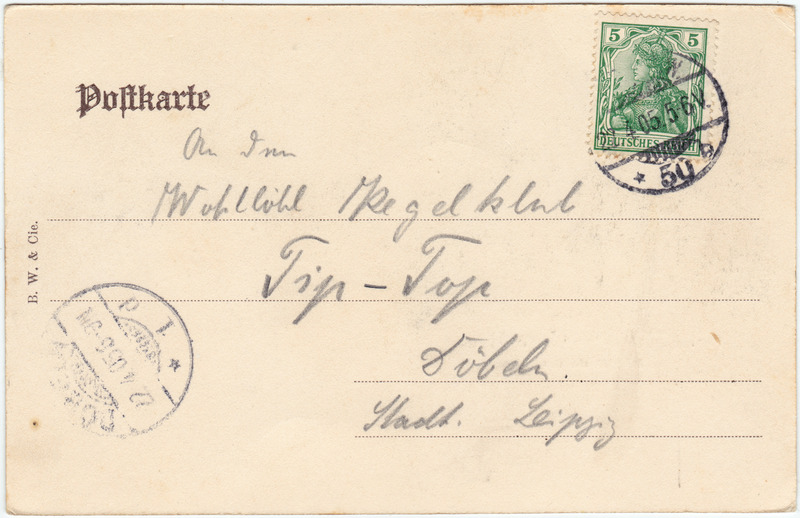 Postkarte
5 5
DEUTSCHES REICH
4.05.5-6N.
* 50 a
An den
Wohllöbl Kegelklub
Tip-Top
Döbeln
Stadt. Leipzig
B. W. & Cie.